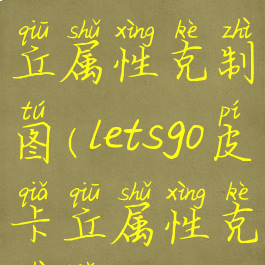 qiū shǔ xìng kè zhì
丘属性克制
tú pí
图(letsgo皮
qiǎ qiū shǔ xìng kè
卡丘属性克